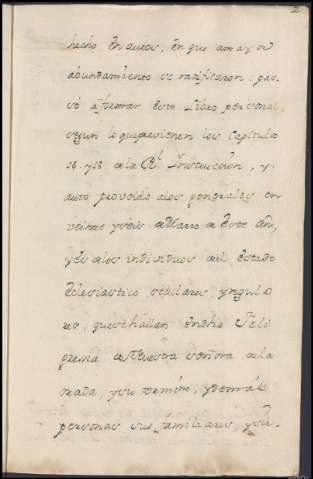 2.
hecho en autos, en que a mayor
abundamiento se ratificaron: pa-
só a formar este Libro personal,
segun lo que previenen los Capitulos
16. y 18 de la Rl. Instruccion, y
auto proveido a los generales en
veinte y seis de Marzo de este Año,
y es de los individuos del estado
Eclesiastico seculares, y regula
res, que se hallan en dha
de Nuestra Señora de la
y su termino, y demas
personas sus familiares, y sir-